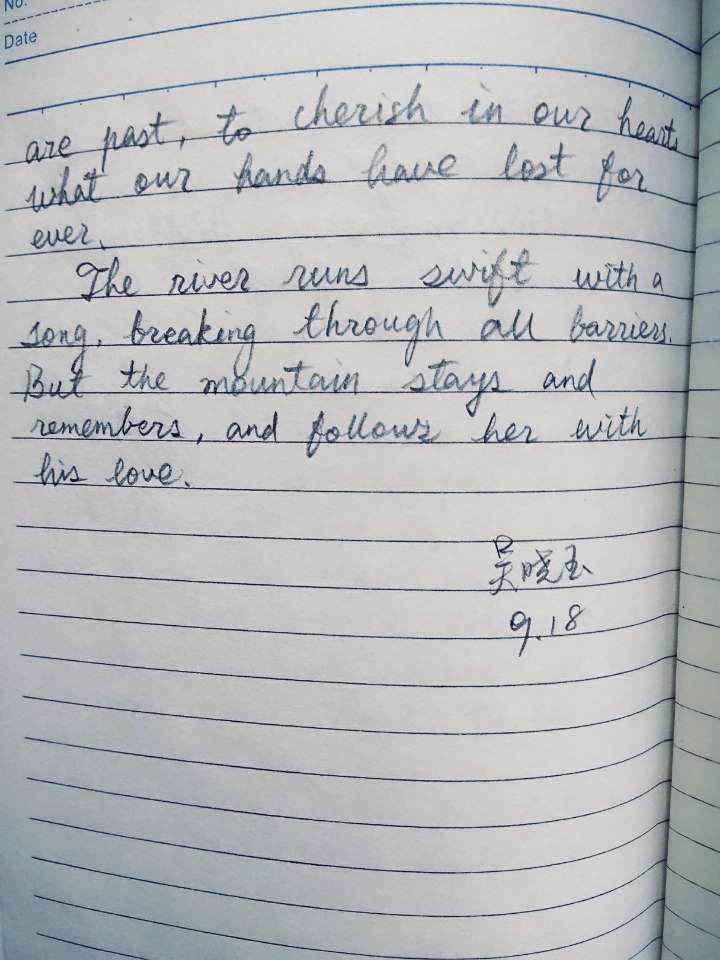 No.
Date
are past, to cherish in our heart
what our hands have lost for
ever.
The river runs swift with a
song, breaking through all barriers.
But the mountain stays and
remembers, and follows her with
his love.
吴晓玉
9.18